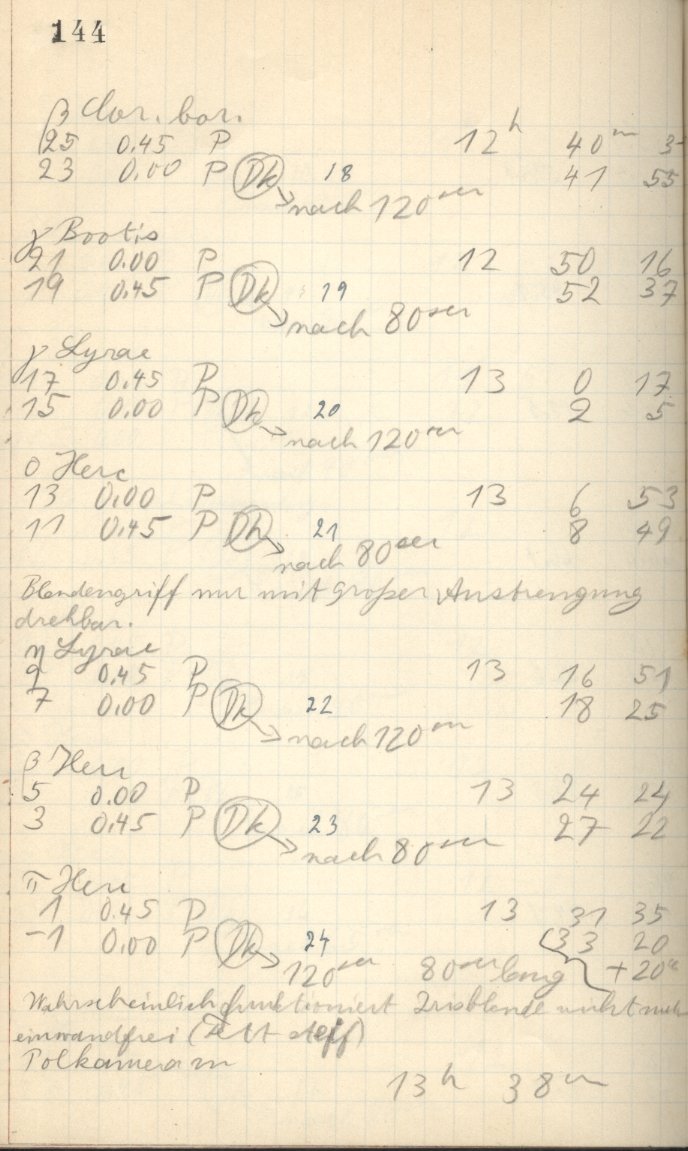 144
β Cor. bor.
25 0.45 P 12h 40m 3
23 0.00 P Dk 18 41 55
nach 120sec
γ Bootis
21 0.00 P 12 50 16
19 0.45 P Dk 19 52 37
nach 80sec
γ Lyrae
17 0.45 P 13 0 17
15 0.00 P Dk 20 2 5
nach 120sec
o Herc
13 0.00 P 13 6 53
11 0.45 P Dk 21 8 49
nach 80sec
Blendengriff nur mit großer Anstrengung
drehbar.
η Lyrae
9 0.45 P 13 16 51
7 0.00 P Dk 22 18 25
nach 120sec
β Herc
5 0.00 P 13 24 24
3 0.45 P Dk 23 27 22
nach 80sec
π Herc
1 0.45 P 13 31 35
-1 0.00 P Dk 24 33 20
120sec 80sec lang +20s
Wahrscheinlich funktioniert Irisblende nicht mehr
einwandfrei (Fett steif)
Polkamera zu
13h 38m